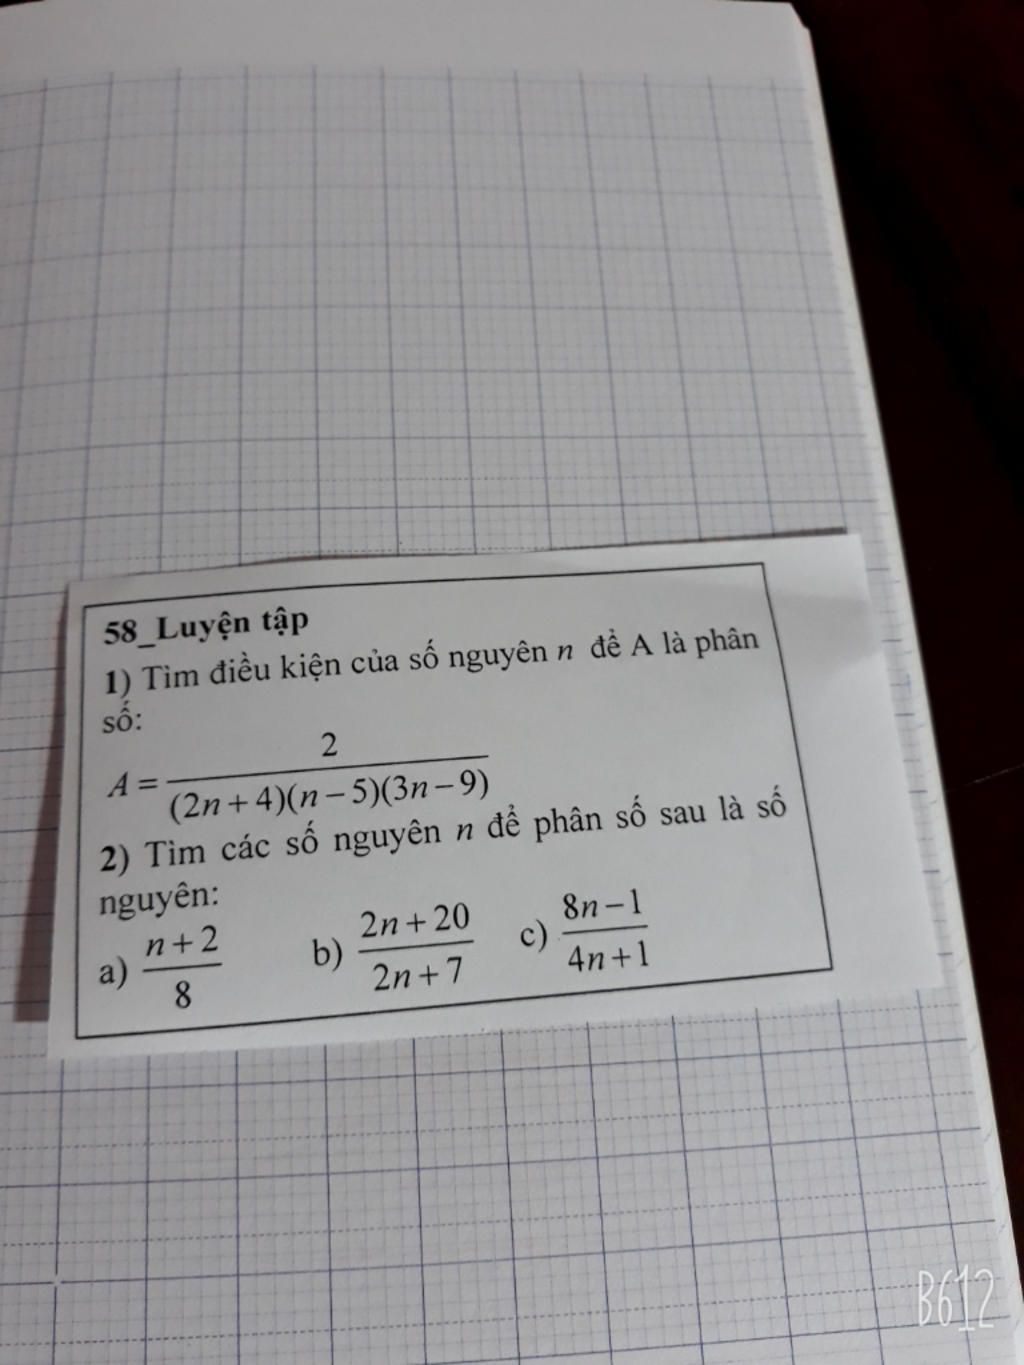 58_Luyện tập
1) Tìm điều kiện của số nguyên n để A là phân
số:
A = 2/((2n+4)(n−5)(3n−9))
2) Tìm các số nguyên n để phân số sau là số
nguyên:
a) (n+2)/8 b) (2n+20)/(2n+7) c) (8n−1)/(4n+1)
B612